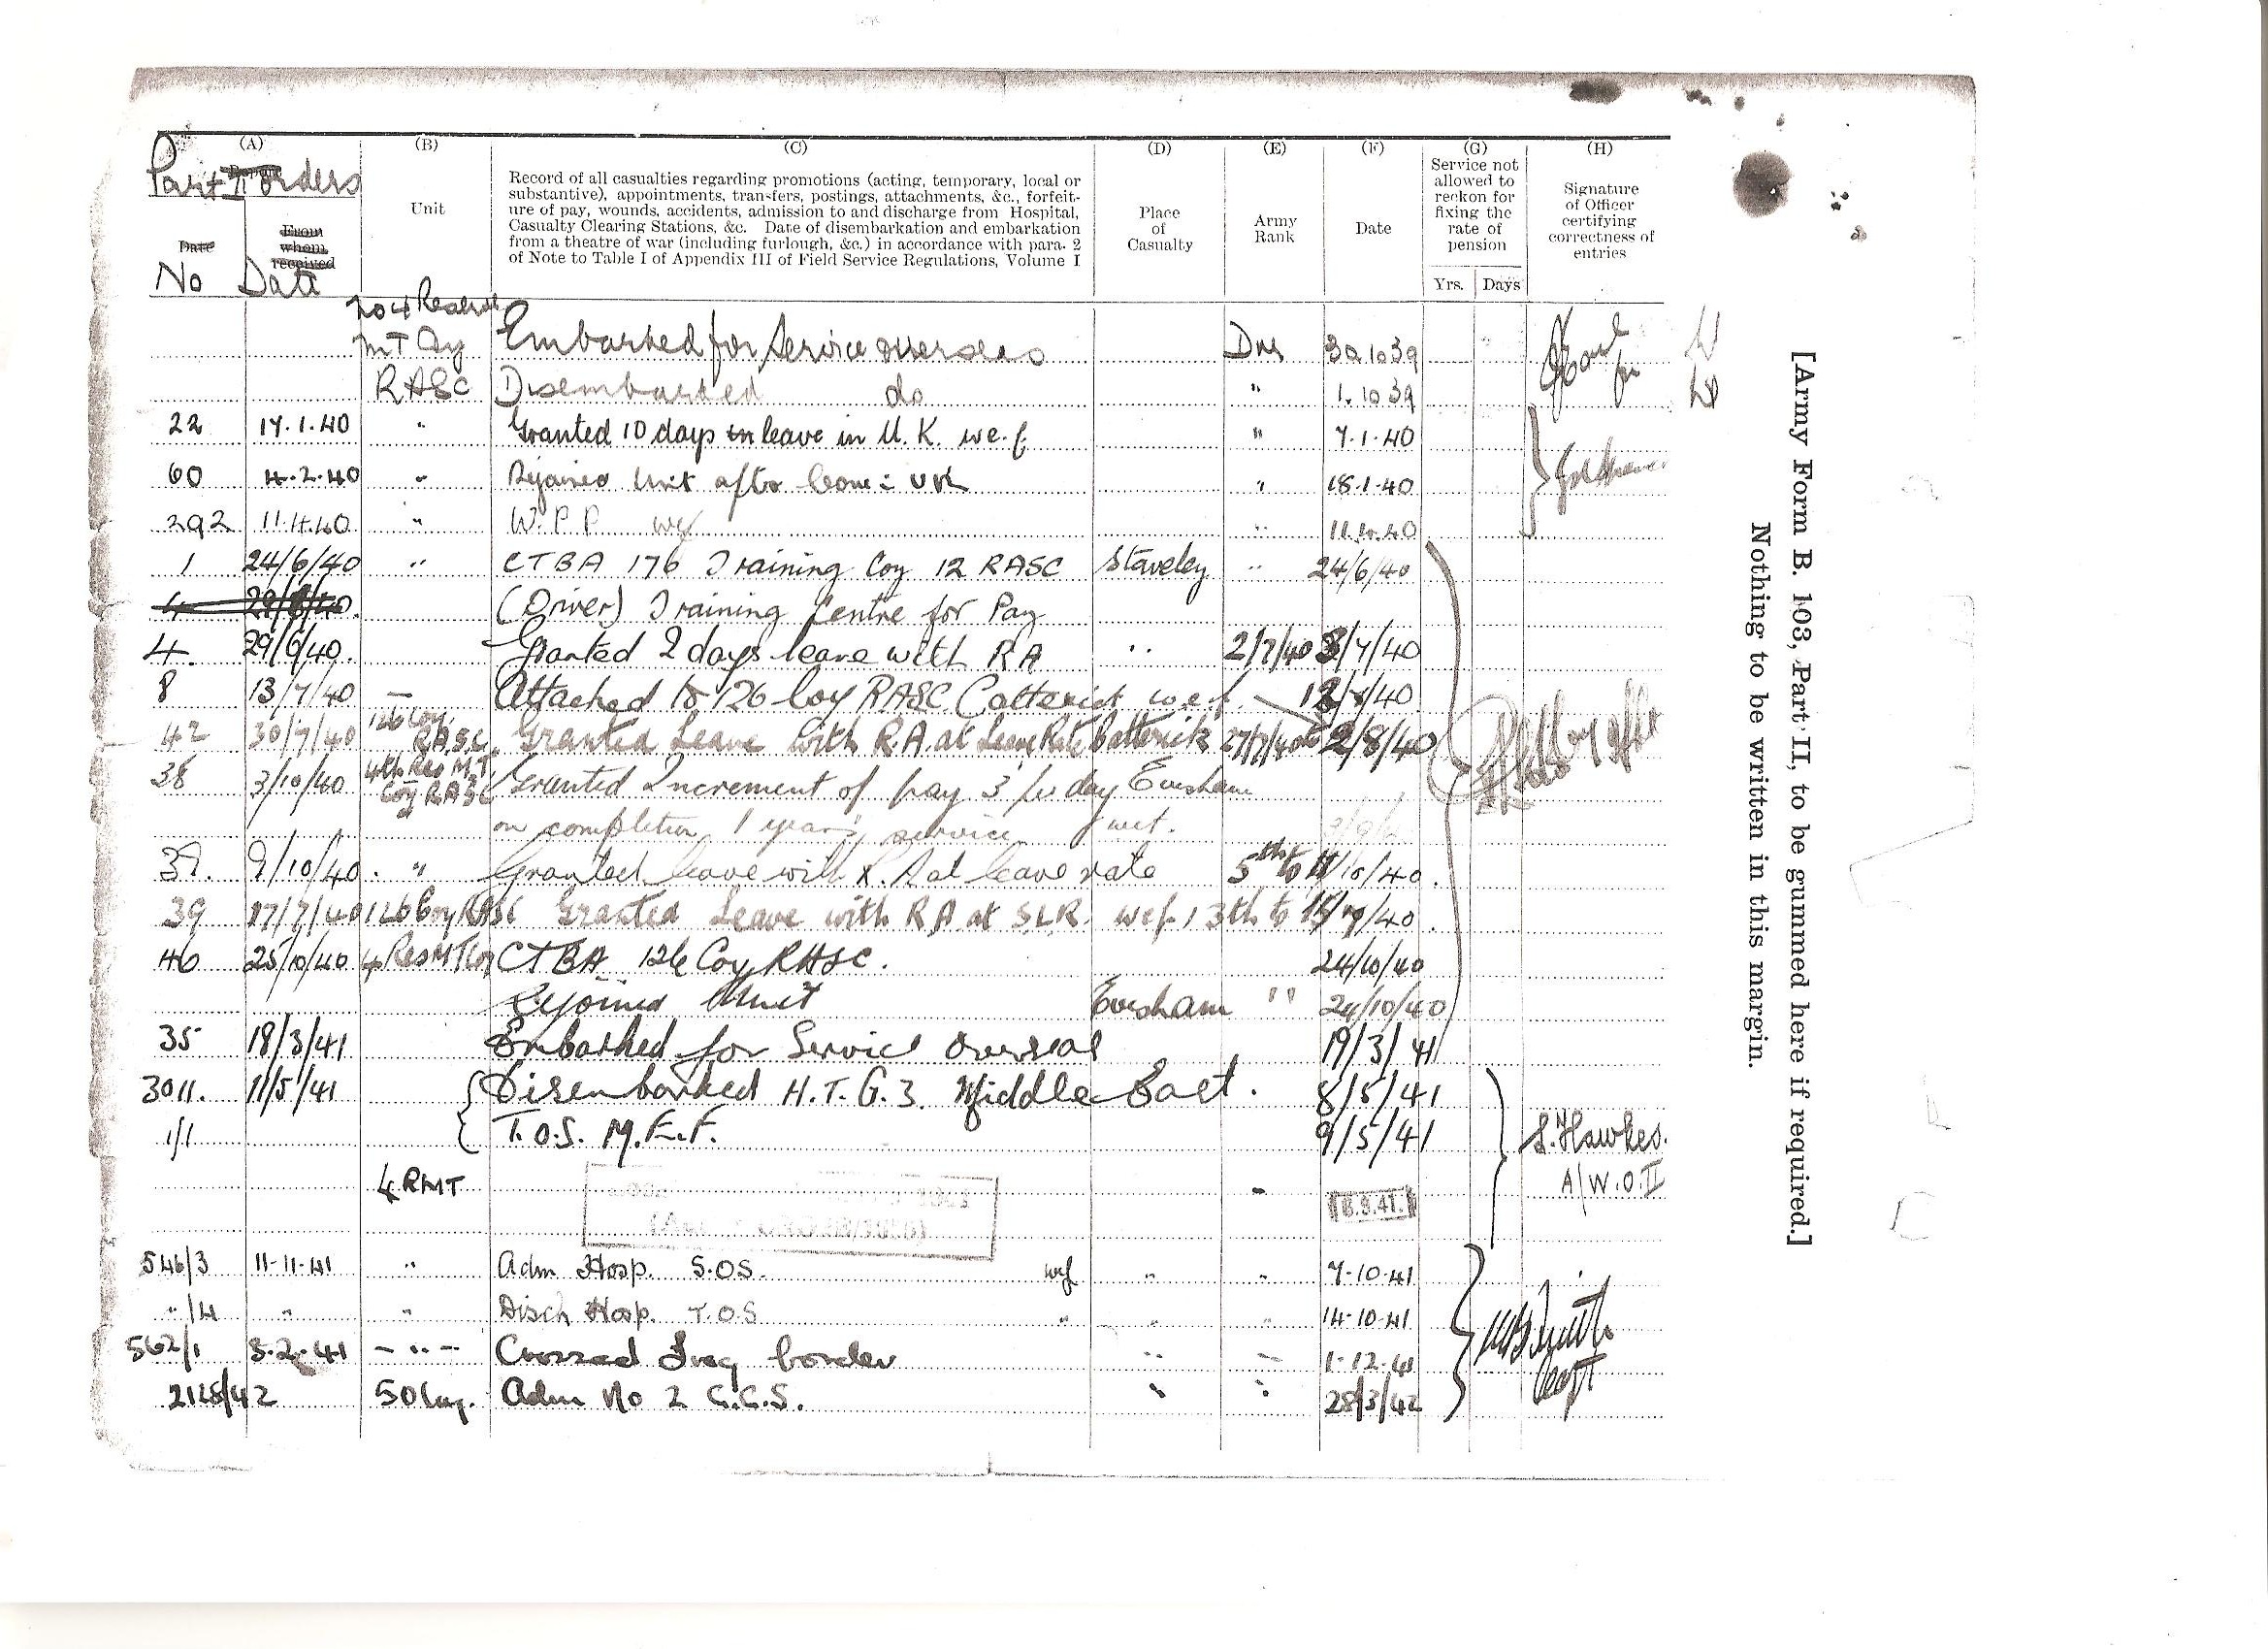 (A) (B) (C) (D) (E) (F) (G) (H)
Part II orders
Unit
Record of all casualties regarding promotions (acting, temporary, local or
substantive), appointments, transfers, postings, attachments, &c., forfeit-
ure of pay, wounds, accidents, admission to and discharge from Hospital,
Casualty Clearing Stations, &c. Date of disembarkation and embarkation
from a theatre of war (including furlough, &c.) in accordance with para. 2
of Note to Table I of Appendix III of Field Service Regulations, Volume I
Place
of
Casualty
Army
Rank
Date
Service not
allowed to
reckon for
fixing the
rate of
pension
Yrs. Days
Signature
of Officer
certifying
correctness of
entries
Date
From
whom
received
No Date
204 Reserve
MT Coy Embarked for Service overseas Dvr 30 10 39
RASC Disembarked do " 1.10 39
22 17.1.40 " Granted 10 days in leave in U.K. we.f. " 7.1.40
60 4.2.40 " Rejoined Unit after leave : UK " 18.1.40
292 11.4.40 " W.P.P wef " 40
1 24/6/40 " CTBA 176 Training Coy 12 RASC Staveley " 24/6/40
4 29/6/40. (Driver) Training Centre for Pay
4. 29/6/40. Granted 2 days leave with RA " 2/7/40 3/7/40
8 13/7/40 — Attached to 126 Coy RASC Catterick w.e.f. 40
42 30/7/40 126 Coy. RASC Granted Leave with R.A. at Leave Rate Catterick 27/7/40 to 2/8/40
38 3/10/40 4th Res M.T. Coy RASC Granted Increment of pay 3 day Evesham
on completion 1 year's service wef.
37. 9/10/40. " Granted leave with R.A at leave rate 5th to 11/10/40.
39 17/7/40 126 Coy RASC Granted Leave with RA at S.L.R. wef. 13th to 15/7/40.
46 25/10/40 4 Res MT Coy CTBA 126 Coy RASC. 24/10/40
Rejoined Unit Evesham " 24/10/40
35 18/3/41 Embarked for Service Overseas 19/3/41
3011. 11/5/41 Disembarked H.T. G.3. Middle East. 8/5/41
1/1 T.O.S. M.E.F. 9/5/41
S.N Hawkes.
A/W.O.II
4 RMT 8.9.41.
546/3 11-11-41 " Adm Hosp. S.O.S. wef " " 7-10-41
"/4 " " Disch Hosp. T.O.S " " " 14-10-41
562/1 3.2.41 — " — Crossed Iraq border " " 1-12-41
2128/42 50 Coy. Adm No 2 C.C.S. " " 28/3/42
Capt
[Army Form B. 103, Part II, to be gummed here if required.]
Nothing to be written in this margin.